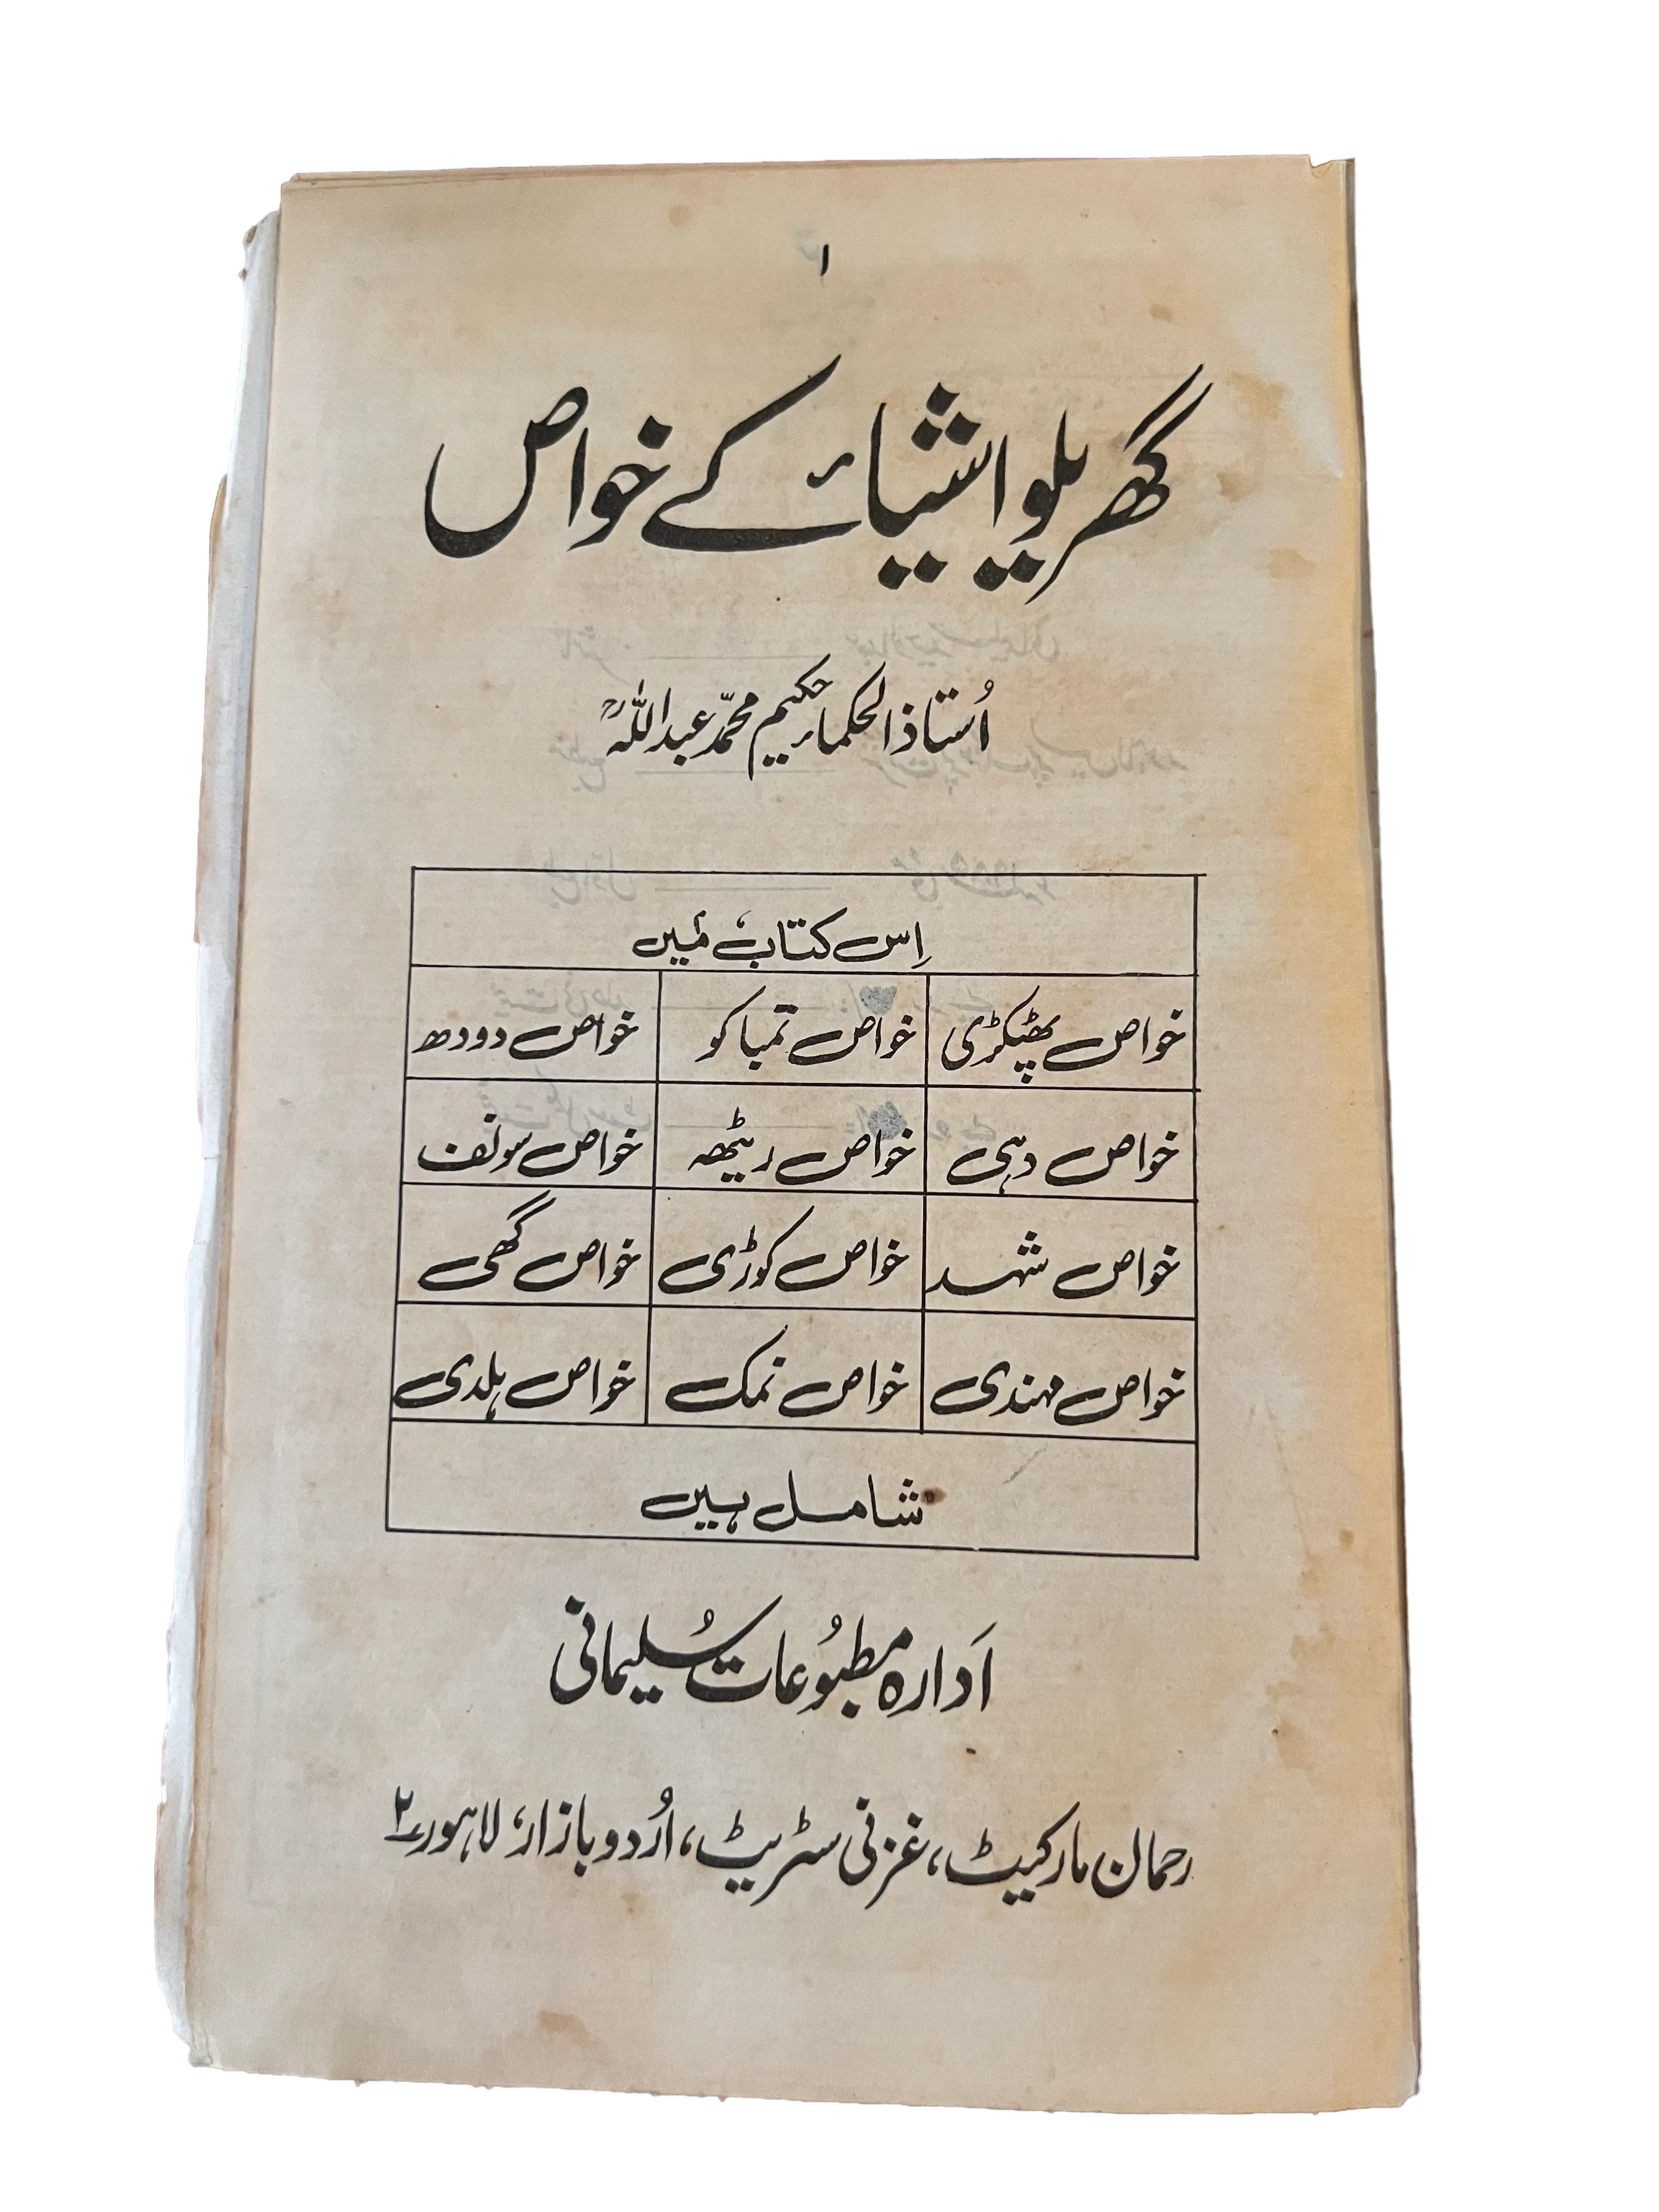 ۱
گھریلو اشیاء کے خواص
اُستاذ الحکماء حکیم محمّد عبداللہؒ
اِس کتاب میں
خواص پھٹکڑی خواص تمباکو خواص دودھ
خواص دہی خواص ریٹھہ خواص سونف
خواص شہد خواص کوڑی خواص گھی
خواص مہندی خواص نمک خواص ہلدی
شامل ہیں
اَدارہ مطبُوعات سُلیمانی
رحمان مارکیٹ، غزنی سٹریٹ، اُردو بازار، لاہور۲